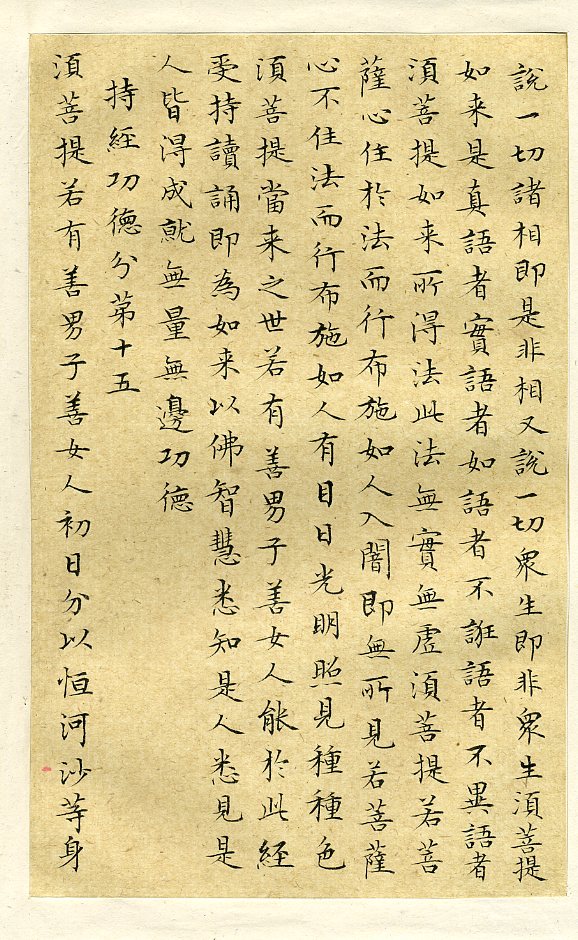 說一切諸相即是非相又說一切衆生即非衆生湏菩提
如来是真語者實語者如語者不誑語者不異語者
湏菩提如来所得法此法無實無虛湏菩提若菩
薩心住於法而行布施如人入闇即無所見若菩薩
心不住法而行布施如人有目日光明照見種種色
湏菩提當来之世若有善男子善女人能於此經
受持讀誦即為如来以佛智慧悉知是人悉見是
人皆得成就無量無邊功德
持經功德分第十五
湏菩提若有善男子善女人初日分以恒河沙等身